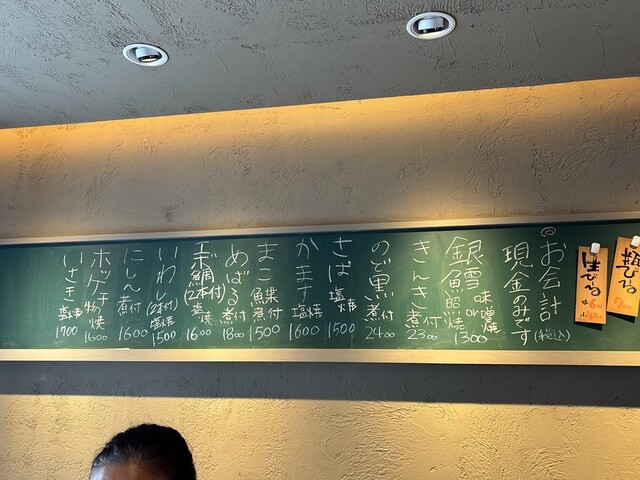 瓶びーる
生びーる
@お会計
現金のみです
(税込)
銀雪魚 味噌 or 照焼
1300
きんき 煮付
2300
のど黒 煮付
2400
さば 塩焼
1500
かます 塩焼
1600
まこ鰈 煮付
1500
めばる 煮付
1800
(2本付)
1600
いわし (2本付) 塩焼
1500
にしん 煮付
1600
ホッケ干物 焼
1600
いさき 塩焼
1700